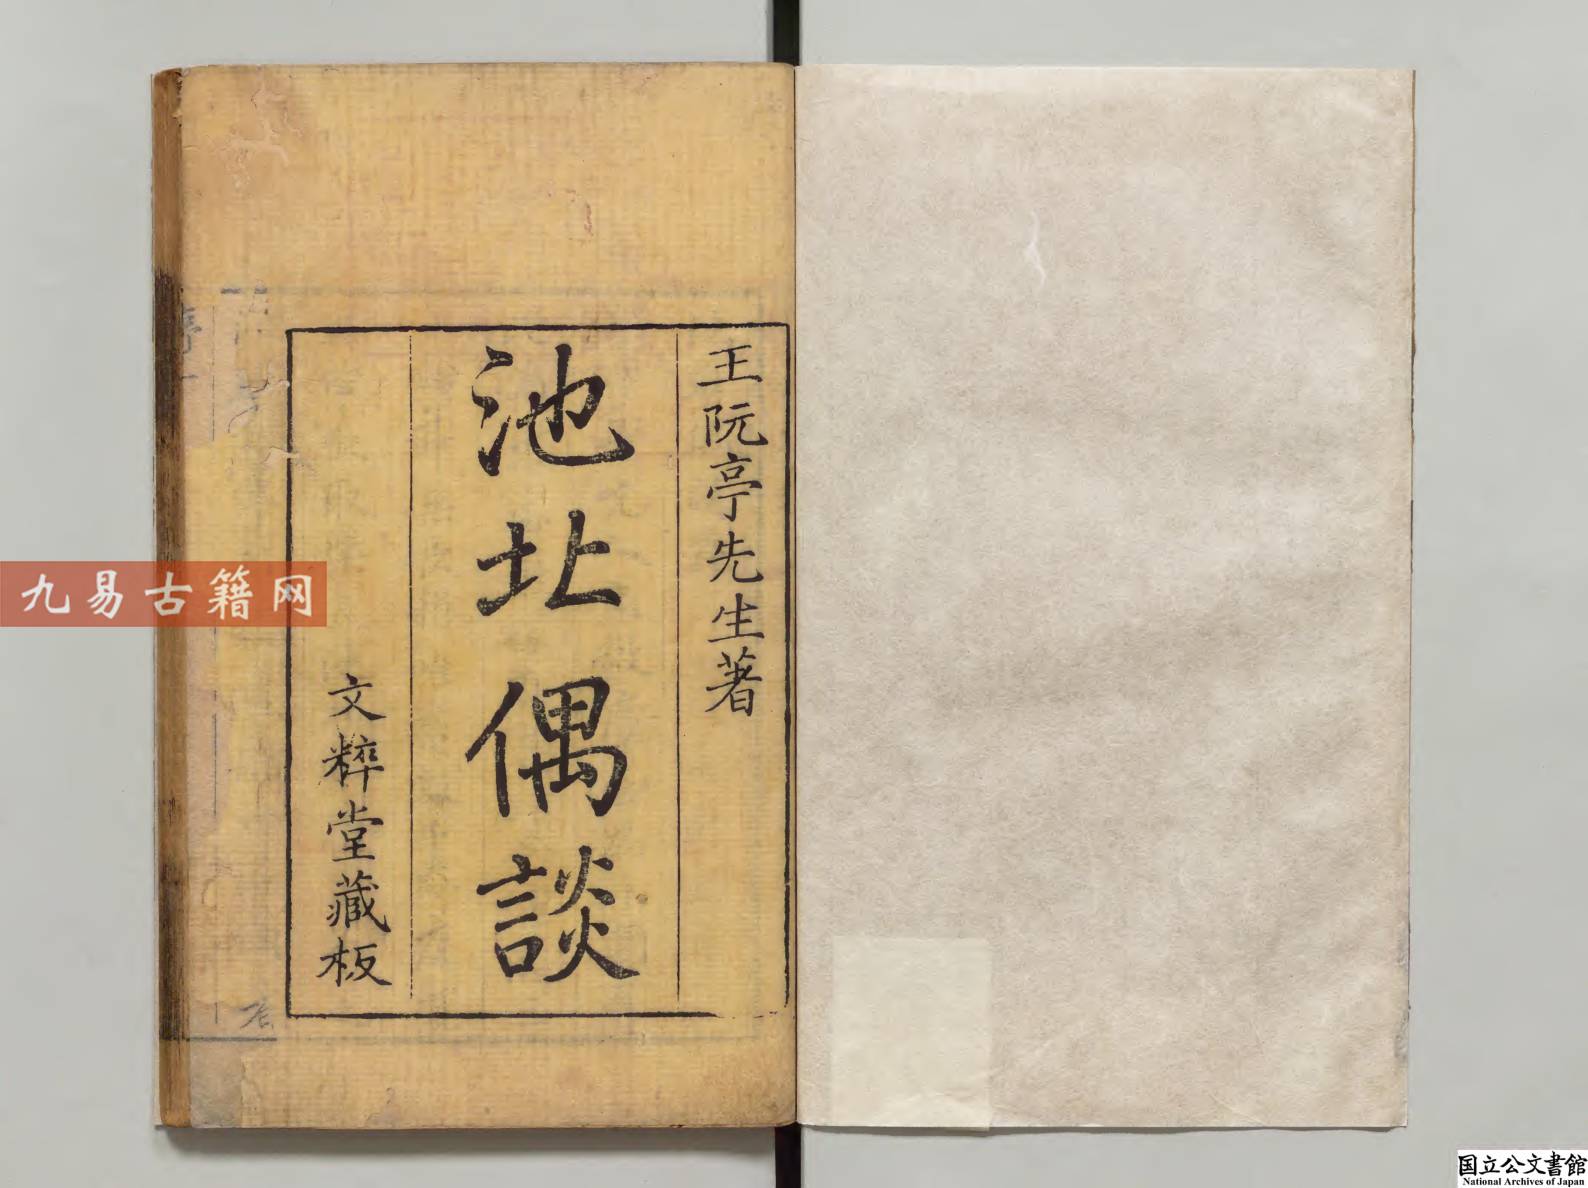 王阮亭先生著
池北偶談
文粹堂藏板
九易古籍网
国立公文書館
National Archives of Japan